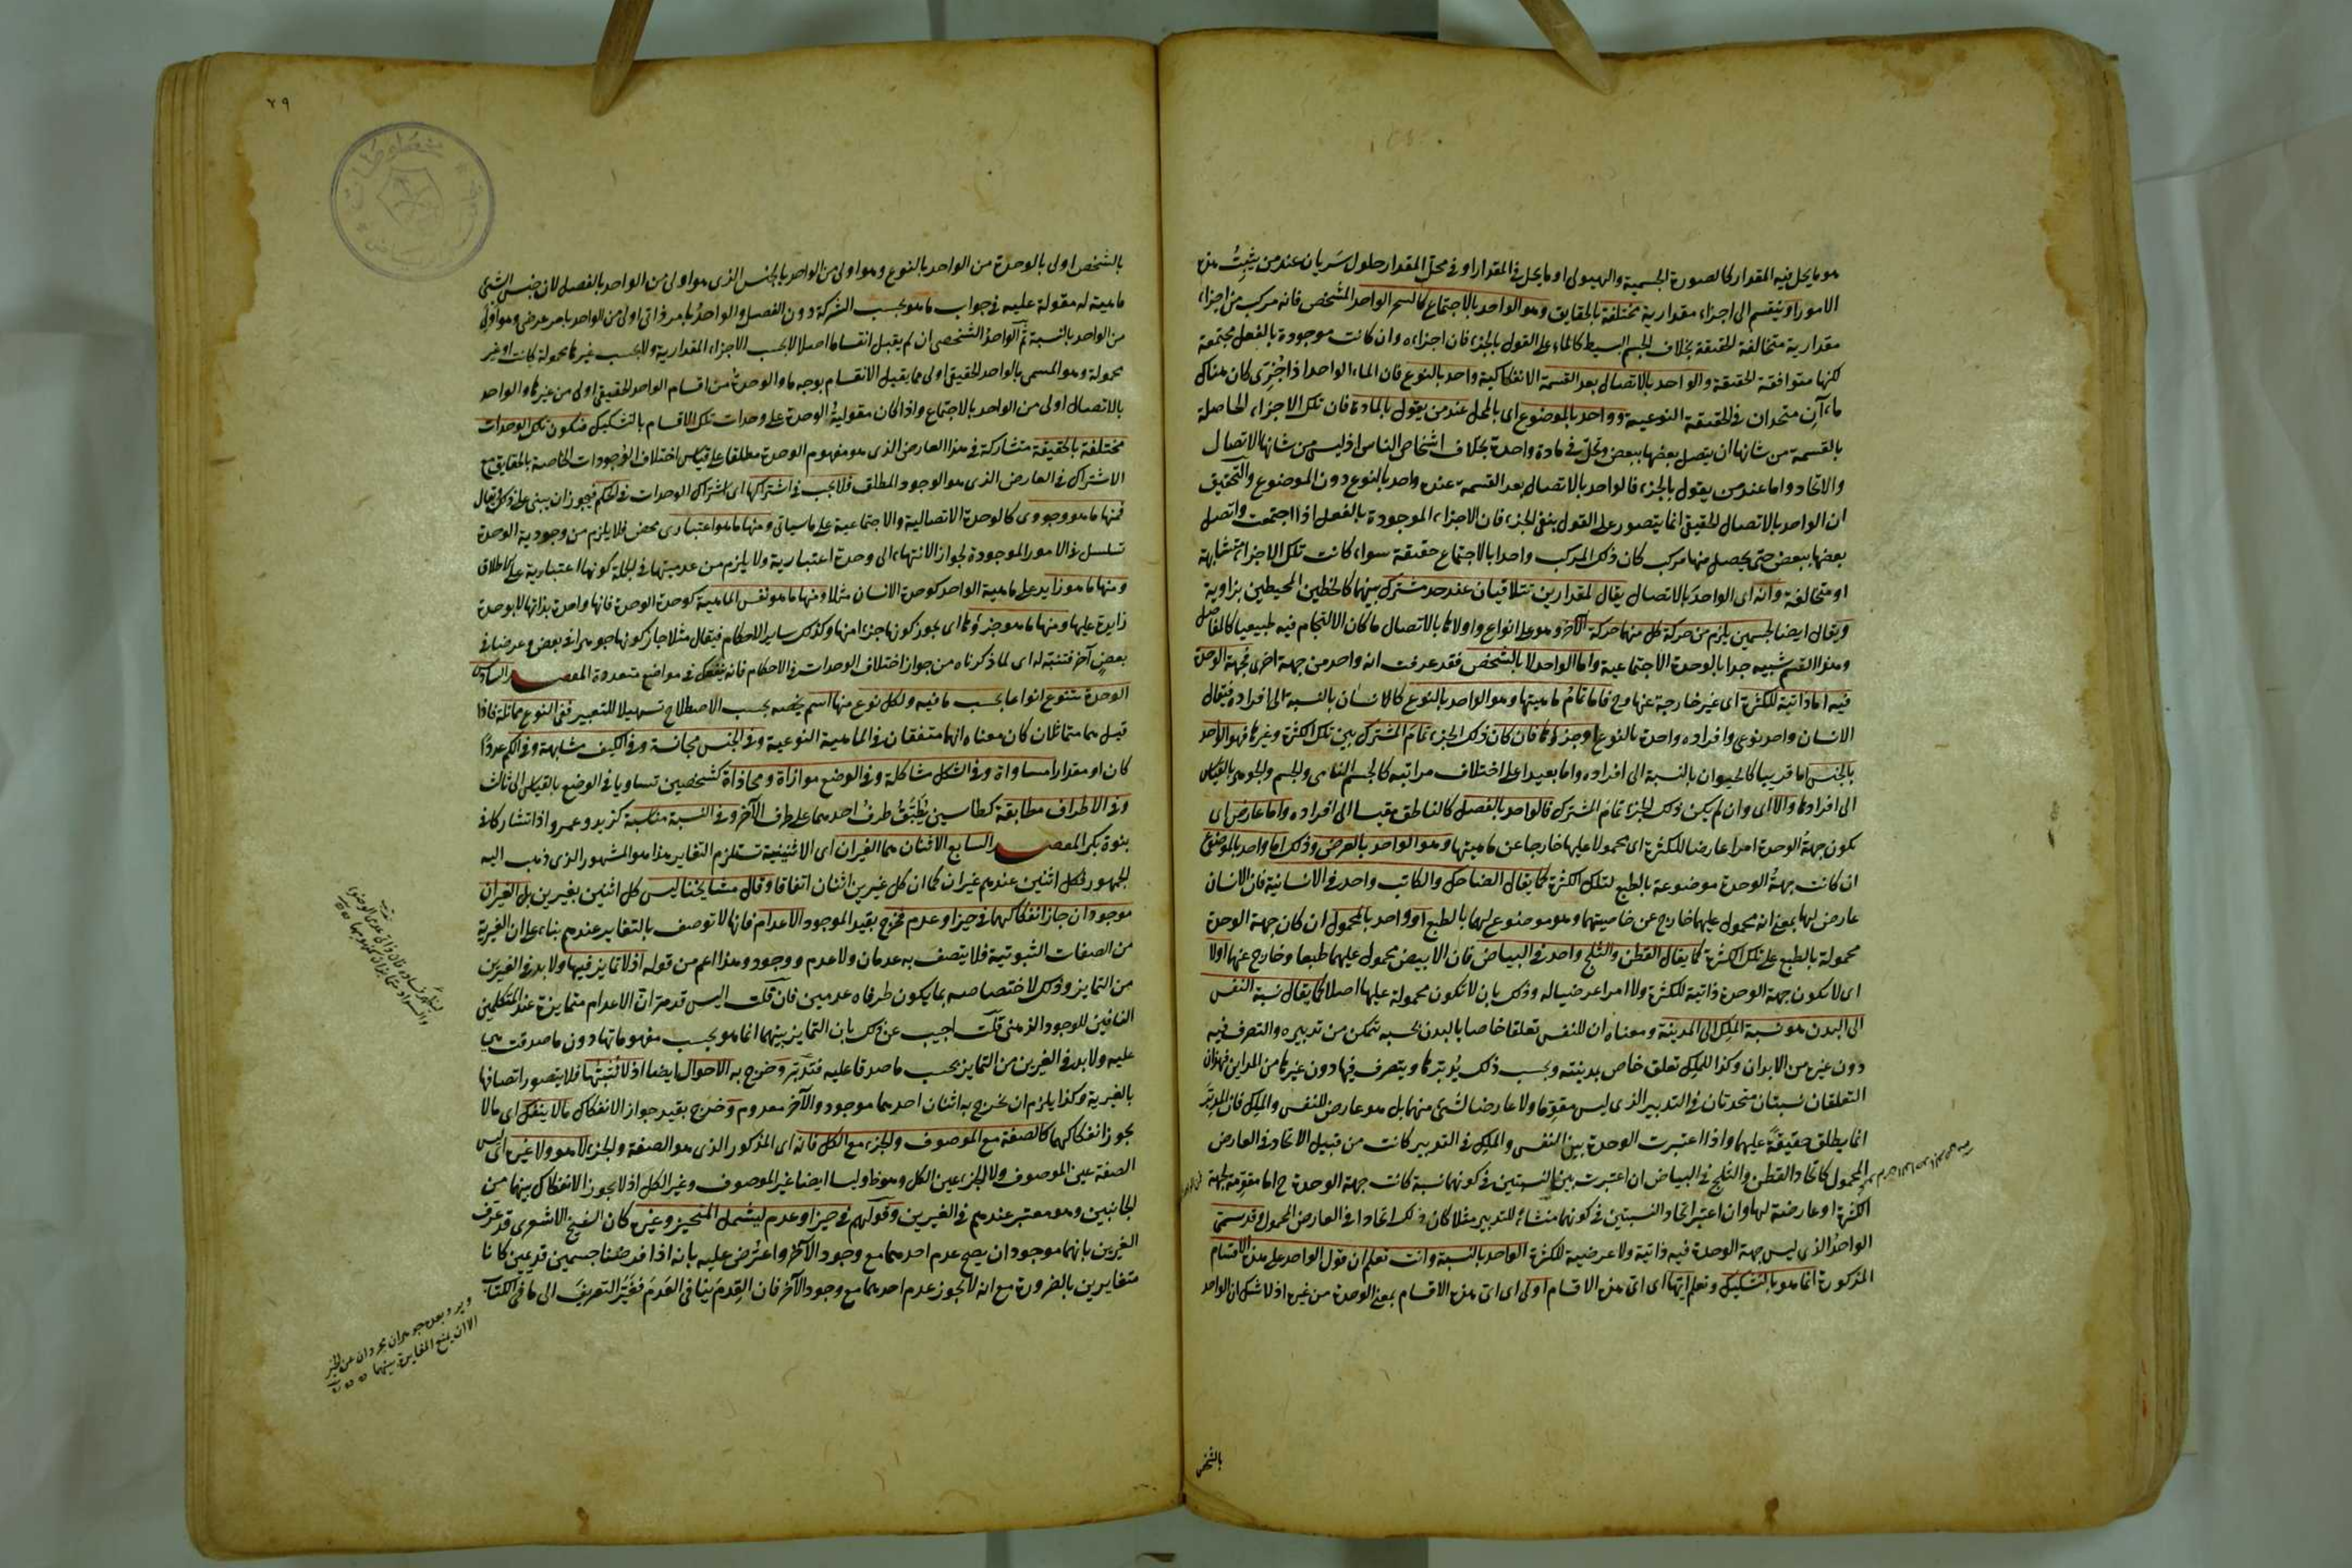 هو ما يحل فيه المقدار كالصورة الجسمية والهيولى او ما يحل في المقدار او في محل المقدار حلول سريان عند من يثبت هذه
الامور او ينقسم الى اجزاء مقدارية مختلفة بالحقايق وهو الواحد بالاجتماع كالشجر الواحد المشخص فانه مركب من اجزاء
مقدارية متخالفة الحقيقة بخلاف الجسم البسيط كالماء على القول بالجزء فان اجزاءه وان كانت موجودة بالفعل مجتمعة
لكنها متوافقة الحقيقة والواحد بالاتصال بعد القسمة الانفكاكية واحد بالنوع فان الماء الواحد اذا جزئ كان هناك
ماءآن متحدان في الحقيقة النوعية وواحد بالموضوع اى بالمحل عند من يقول بالمادة فان تلك الاجزاء الحاصلة
بالقسمة من شانها ان يتصل بعضها ببعض وتحل في مادة واحدة بخلاف اشخاص الناس اذ ليس من شانها الاتصال
والاتحاد واما عند من يقول بالجزء فالواحد بالاتصال بعد القسمة عنده واحد بالنوع دون الموضوع والتحقيق
ان الواحد بالاتصال الحقيقي انما يتصور على القول بنفي الجزء فان الاجزاء الموجودة بالفعل اذا اجتمعت واتصل
بعضها ببعض حتى يحصل منها مركب كان ذلك المركب واحدا بالاجتماع حقيقة سواء كانت تلك الاجزاء متشابهة
او متخالفة وانه اى الواحد بالاتصال يقال لمقدارين تتلاقيان عند حد مشترك بينهما كالخطين المحيطين بزاوية
ويقال ايضا لجسمين يلزم من حركة كل منهما حركة الآخر وهو على انواع واولاها بالاتصال ما كان الالتحام فيه طبيعيا كالمفاصل
وهذا القسم شبيه جدا بالوحدة الاجتماعية واما الواحد لا بالشخص فقد عرفت انه واحد من جهة اخرى فجهة الوحدة
فيه اما ذاتية للكثرة اى غير خارجة عنها وح فاما تمام ماهيتها وهو الواحد بالنوع كالانسان بالنسبة الى افراده فيقال
الانسان واحد نوعي وافراده واحدة بالنوع او جزءها فان كان ذلك الجزء تمام المشترك بين تلك الكثرة وغيرها فهو الواحد
بالجنس اما قريبا كالحيوان بالنسبة الى افراده واما بعيدا على اختلاف مراتبه كالجسم النامى والجسم والجوهر بالقياس
الى افرادها والا اى وان لم يكن ذلك الجزء تمام المشترك فالواحد بالفصل كالناطق مقيسا الى افراده واما عارض اى
يكون جهة الوحدة امرا عارضا للكثرة اى محمولا عليها خارجا عن ماهيتها وهو الواحد بالعرض وذلك اما واحد بالموضوع
ان كانت جهة الوحدة موضوعة بالطبع لتلك الكثرة كما يقال الضاحك والكاتب واحد في الانسانية فان الانسان
عارض لهما بمعنى انه محمول عليهما خارج عن خاصيتهما وهو موضوع لهما بالطبع او واحد بالمحمول ان كان جهة الوحدة
محمولة بالطبع على تلك الكثرة كما يقال القطن والثلج واحد في البياض فان الابيض محمول عليهما طبعا وخارج عنهما اولا
اى لا يكون جهة الوحدة ذاتية للكثرة ولا امرا عرضيا لها وذلك بان لا تكون محمولة عليها اصلا كما يقال نسبة النفس
الى البدن هو نسبة الملك الى المدينة ومعناه ان للنفس تعلقا خاصا بالبدن بحسبه تتمكن من تدبيره والتصرف فيه
دون غيره من الابدان وكذا للملك تعلق خاص بمدينته وبحسب ذلك يدبرها ويتصرف فيها دون غيرها من المداين فهذان
التعلقان نسبتان متحدتان في التدبير الذى ليس مقوما ولا عارضا لشئ منهما بل هو عارض للنفس والملك فان المدبر
انما يطلق حقيقة عليهما واذا اعتبرت الوحدة بين النفس والملك في التدبير كانت من قبيل الاتحاد في العارض
المحمول كاتحاد القطن والثلج في البياض ان اعتبرت بين النسبتين في كونهما نسبة كانت جهة الوحدة ح اما مقومة لجهة
الكثرة او عارضة لها وان اعتبر اتحاد النسبتين في كونهما منشاء للتدبير مثلا كان ذلك اتحادا في العارض المحمول وقد سمى
الواحد الذى ليس جهة الوحدة فيه ذاتية ولا عرضية للكثرة الواحد بالنسبة وانت تعلم ان قول الواحد على هذه الاقسام
المذكورة انما هو بالتشكيك وتعلم ايها اى اى هذه الاقسام اولى اى اى هذه الاقسام بمعنى الوحدة من غيره اذ لا شك ان الواحد
بالشخص
٧٩
بالشخص اولى بالوحدة من الواحد بالنوع وهو اولى من الواحد بالجنس الذى هو اولى من الواحد بالفصل لان جنس الشئ
ماهية له مقولة عليه في جواب ما هو بحسب الشركة دون الفصل والواحد بامر ذاتي اولى من الواحد بامر عرضي وهو اولى
من الواحد بالنسبة ثم الواحد الشخصي ان لم يقبل انقساما اصلا لا بحسب الاجزاء المقدارية ولا بحسب غيرها محمولة كانت او غير
محمولة وهو المسمى بالواحد الحقيقي اولى مما يقبل الانقسام بوجه ما والوحدة من اقسام الواحد الحقيقي اولى من غيرها والواحد
بالاتصال اولى من الواحد بالاجتماع واذا كان مقولية الوحدة على وحدات تلك الاقسام بالتشكيك فتكون تلك الوحدات
مختلفة بالحقيقة متشاركة في هذا العارض الذى هو مفهوم الوحدة مطلقا على قياس اختلاف الوجودات الخاصة بالحقايق مع
الاشتراك في العارض الذى هو الوجود المطلق فلا يجب في اشتراكها اى اشتراك الوحدات في الحكم فيجوز ان يبنى على ذلك ويقال
فمنها ما هو وجودى كالوحدة الاتصالية والاجتماعية على ما سياتي ومنها ما هو اعتبارى محض فلا يلزم من وجودية الوحدة
تسلسل في الامور الموجودة لجواز الانتهاء الى وحدة اعتبارية ولا يلزم من عدميتها في الجملة كونها اعتبارية على الاطلاق
ومنها ما هو زايد على ماهية الواحد كوحدة الانسان مثلا ومنها ما هو نفس الماهية كوحدة الوحدة فانها واحدة بذاتها لا بوحدة
زايدة عليها ومنها ما هو جزؤها اى يجوز كونها جزءا منها وكذلك ساير الاحكام فيقال مثلا جاز كونها جوهرا في بعض وعرضا في
بعض آخر فتنبه له اى لما ذكرناه من جواز اختلاف الوحدات في الاحكام فانه ينفعك في مواضع متعددة المقصد السادس
الوحدة تتنوع انواعا بحسب ما فيه ولكل نوع منها اسم يخصه بحسب الاصطلاح تسهيلا للتعبير ففي النوع مماثلة فاذا
قيل هما متماثلان كان معناه انهما متفقان في الماهية النوعية وفي الجنس مجانسة وفي الكيف مشابهة وفي الكم عددا
كان او مقدارا مساواة وفي الشكل مشاكلة وفي الوضع موازاة ومحاذاة كشخصين تساويا في الوضع بالقياس الى ثالث
وفي الاطراف مطابقة كطاسين يطبق طرف احدهما على طرف الآخر وفي النسبة مناسبة كزيد وعمرو اذا تشاركا في
بنوة بكر المقصد السابع الاثنان هما الغيران اى الاثنينية تستلزم التغاير هذا هو المشهور الذى ذهب اليه
الجمهور فكل اثنين عندهم غيران كما ان كل غيرين اثنان اتفاقا وقال مشايخنا ليس كل اثنين بغيرين بل الغيران
موجودان جاز انفكاكهما في حيز او عدم فخرج بقيد الموجود الاعدام فانها لا توصف بالتغاير عندهم بناء على ان الغيرية
من الصفات الثبوتية فلا يتصف به عدمان ولا عدم ووجود وهذا اعم من قوله اذ لا تمايز فيها ولا بد في الغيرين
من التمايز وذلك لاختصاصه بما يكون طرفاه عدميين فان قلت اليس قد مر ان الاعدام متمايزة عند المتكلمين
النافين للوجود الذهني قلت اجيب عن ذلك بان التمايز بينهما انما هو بحسب مفهوماتها دون ما صدقت هي
عليه ولا بد في الغيرين من التمايز بحسب ما صدقا عليه فتدبر وخرج به الاحوال ايضا اذ لا نثبتها فلا يتصور اتصافها
بالغيرية وكذا يلزم ان يخرج به اثنان احدهما موجود والآخر معدوم وخرج بقيد جواز الانفكاك ما لا ينفك اى ما لا
يجوز انفكاكهما كالصفة مع الموصوف والجزء مع الكل فانه اى المذكور الذى هو الصفة والجزء لا هو ولا غيره اى ليس
الصفة عين الموصوف ولا الجزء عين الكل وهو ظ وليسا ايضا غير الموصوف وغير الكل اذ لا يجوز الانفكاك بينهما من
الجانبين وهو معتبر عندهم في الغيرين وقولهم في حيز او عدم ليشمل المتحيز وغيره كان الشيخ الاشعرى قد عرف
الغيرين بانهما موجودان يصح عدم احدهما مع وجود الآخر واعترض عليه بانه اذا فرضنا جسمين قديمين كانا
متغايرين بالضرورة مع انه لا يجوز عدم احدهما مع وجود الآخر فان القدم ينافي العدم فغير التعريف الى ما في الكتاب
الا ان يمنع المغايرة بينهما